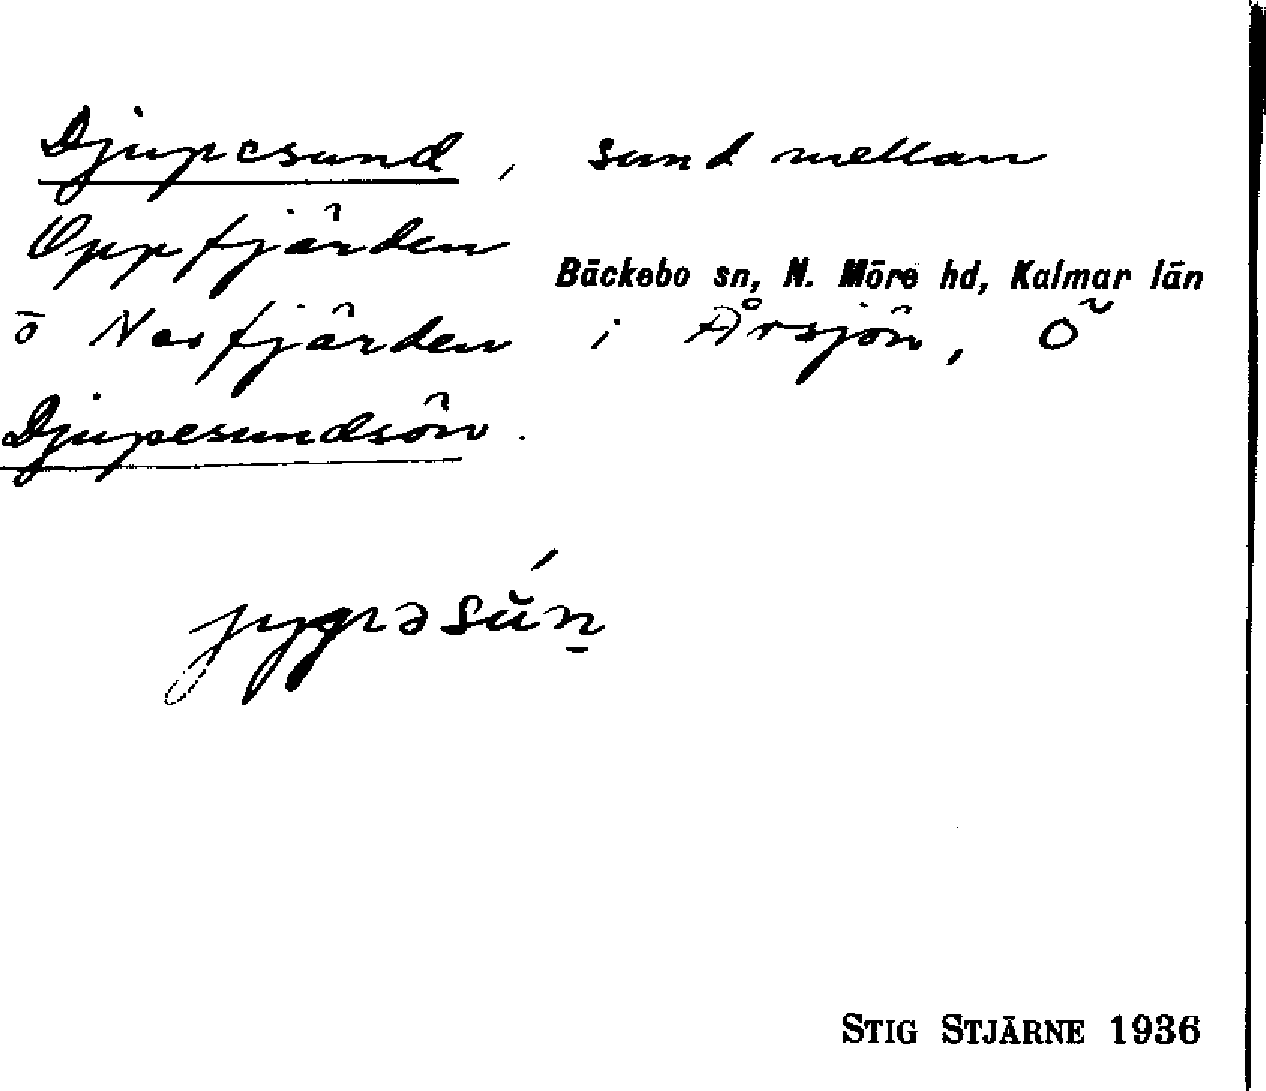 Djupesund, sund mellan
Oppfjärden
Bäckebo sn, N. Möre hd, Kalmar län
ō Nerfjärden i Årsjön, Ö
Djupesundsön.
STIG STJÄRNE 1936